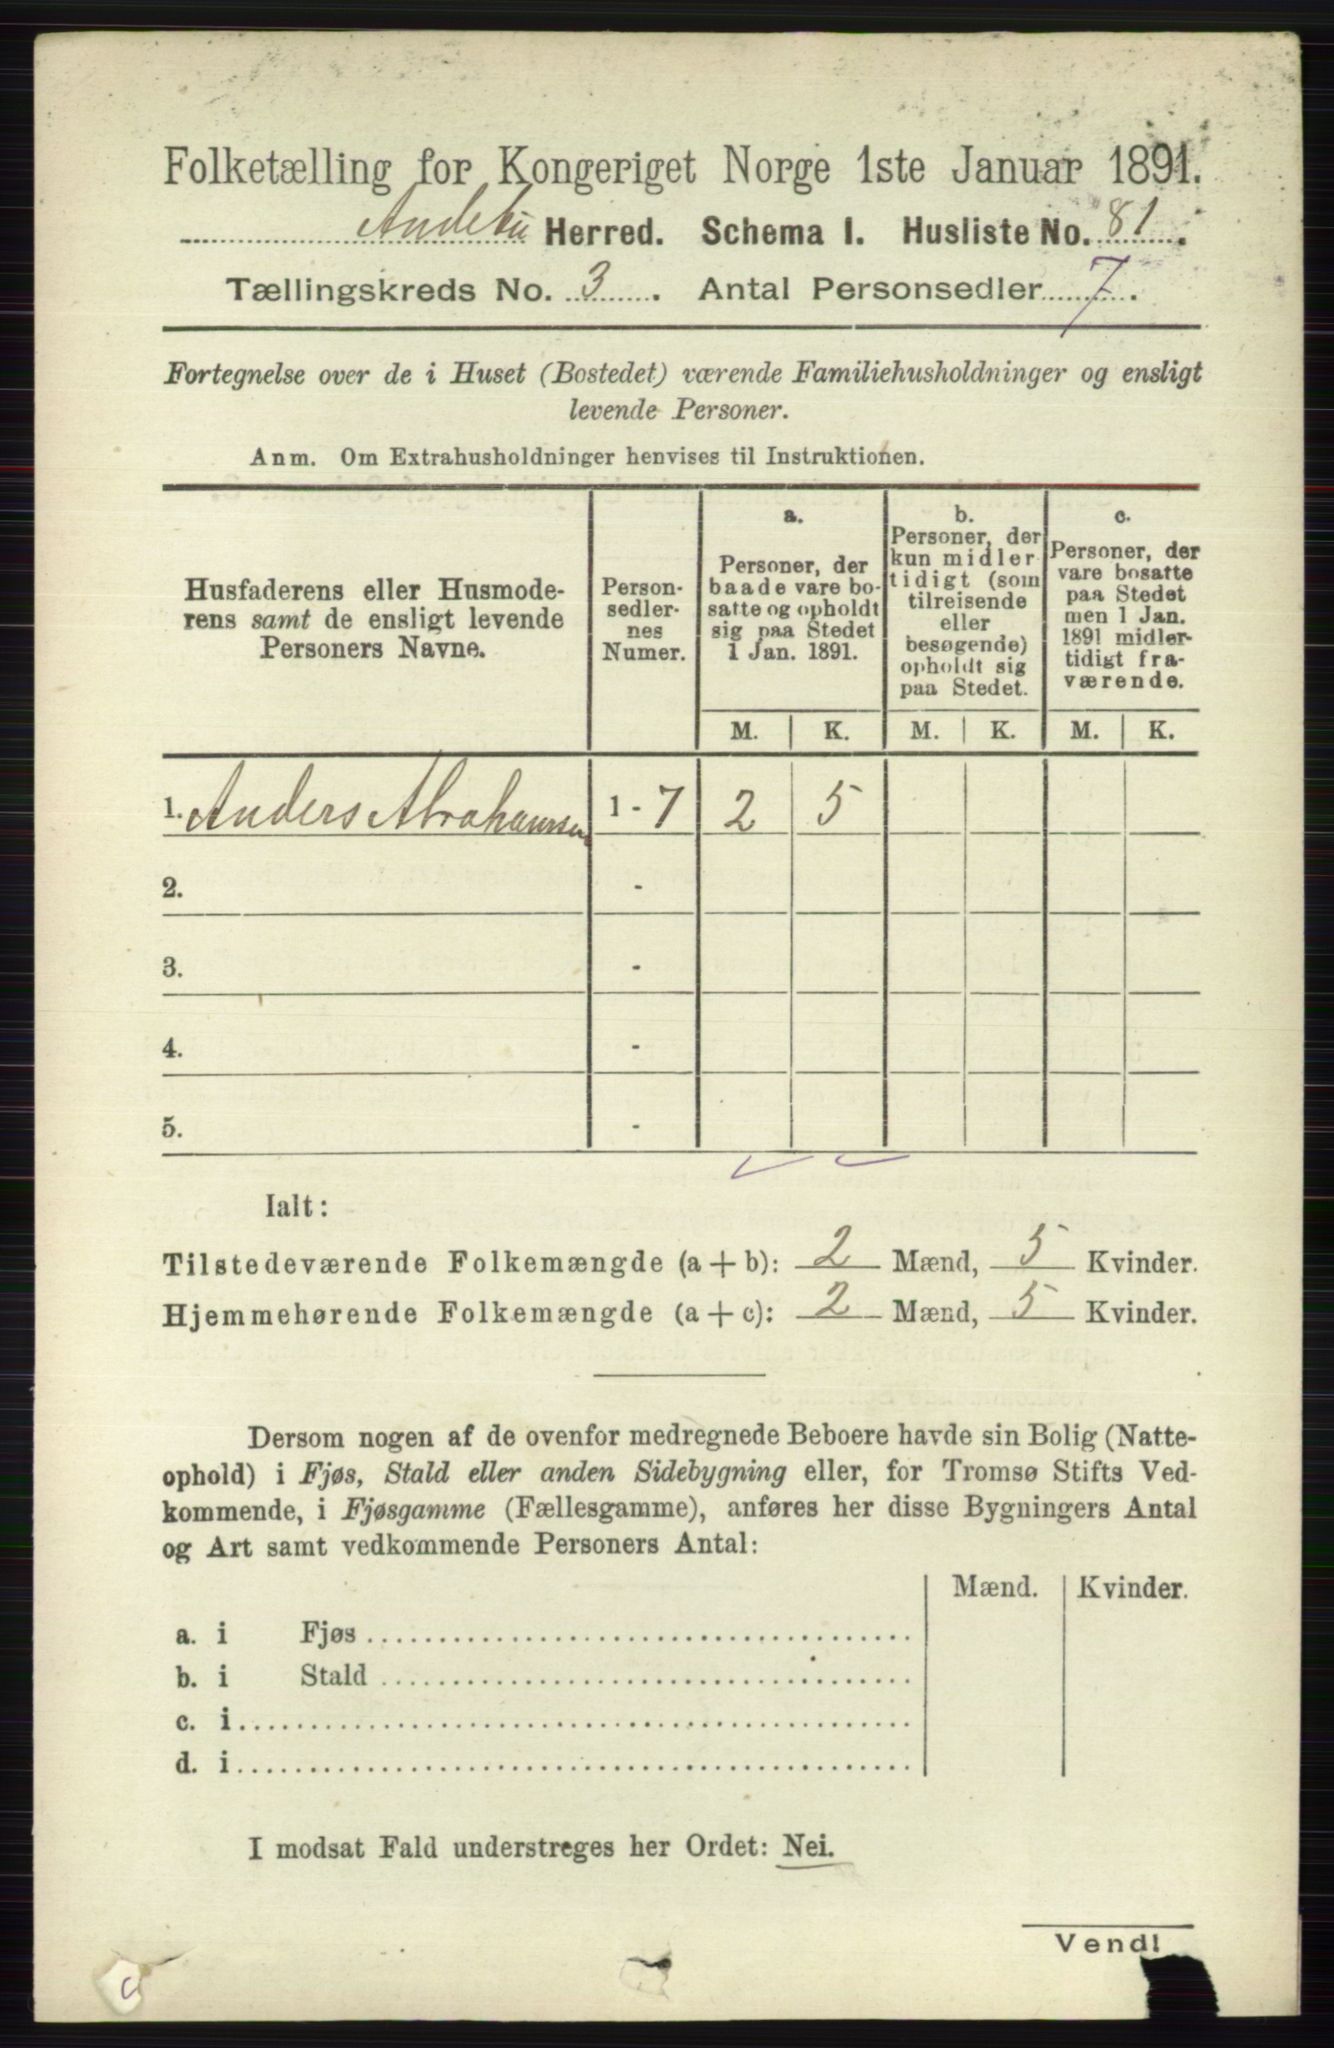 Folketælling for Kongeriget Norge 1ste Januar 1891.
Andebu Herred. Schema I. Husliste No. 81.
Tællingskreds No. 3. Antal Personsedler 7.
Fortegnelse over de i Huset (Bostedet) værende Familiehusholdninger og ensligt
levende Personer.
Anm. Om Extrahusholdninger henvises til Instruktionen.
Husfaderens eller Husmode-
rens samt de ensligt levende
Personers Navne.
Person-
sedler-
nes
Numer.
a.
Personer, der
baade vare bo-
satte og opholdt
sig paa Stedet
1 Jan. 1891.
b.
Personer, der
kun midler
tidigt (som
tilreisende
eller
besøgende)
opholdt sig
paa Stedet.
c.
Personer, der
vare bosatte
paa Stedet
men 1 Jan.
1891 midler-
tidigt fra-
værende.
M. K. M. K. M. K.
1. Anders Abrahamsen 1 - 7 2 5
2. -
3. -
4. -
5. -
Ialt:
Tilstedeværende Folkemængde (a + b): 2 Mænd, 5 Kvinder.
Hjemmehørende Folkemængde (a + c): 2 Mænd, 5 Kvinder.
Dersom nogen af de ovenfor medregnede Beboere havde sin Bolig (Natte-
ophold) i Fjøs, Stald eller anden Sidebygning eller, for Tromsø Stifts Ved-
kommende, i Fjøsgamme (Fællesgamme), anføres her disse Bygningers Antal
og Art samt vedkommende Personers Antal:
Mænd. Kvinder.
a. i Fjøs
b. i Stald
c. i
d. i
I modsat Fald understreges her Ordet: Nei.
Vend!